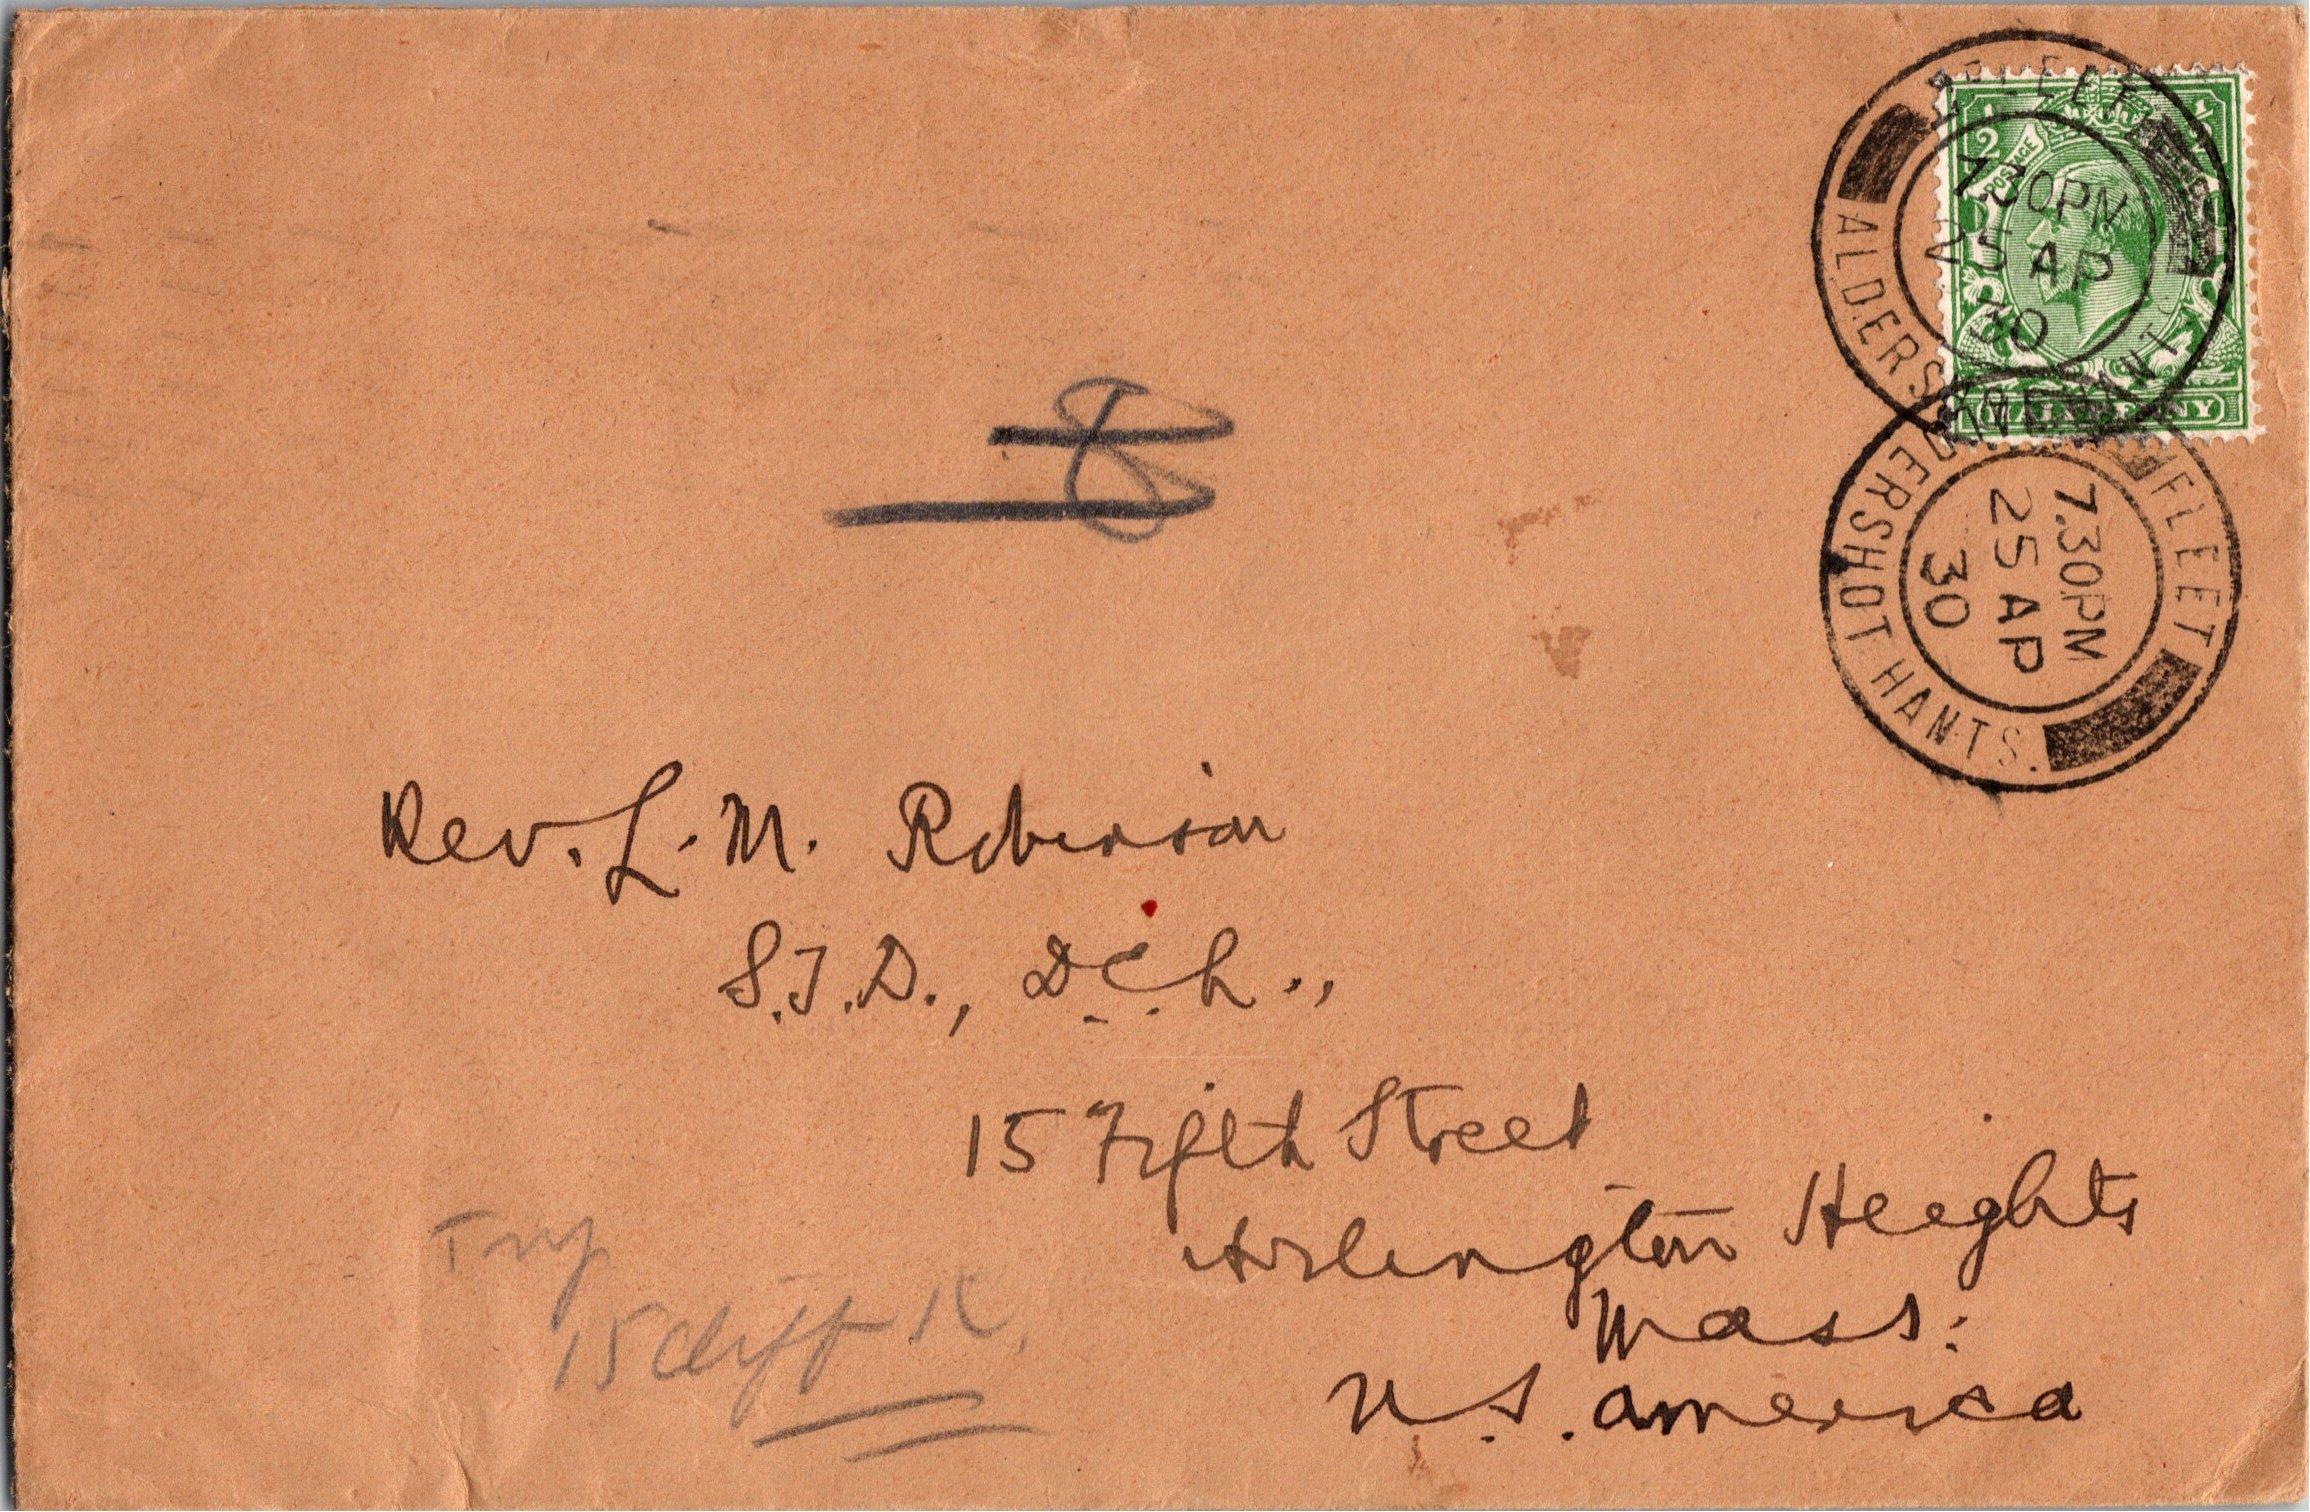 FLEET
7.30PM
25 AP
30
ALDERSHOT HANTS.
1/2 1/2
POSTAGE
HALFPENNY
FLEET
7.30PM
25 AP
30
ALDERSHOT HANTS.
Rev. L. M. Robinson
S.T.D., D.C.L.,
15 Fifth Street
Arlington Heights
Mass:
U.S. America
Try
15 Cliff